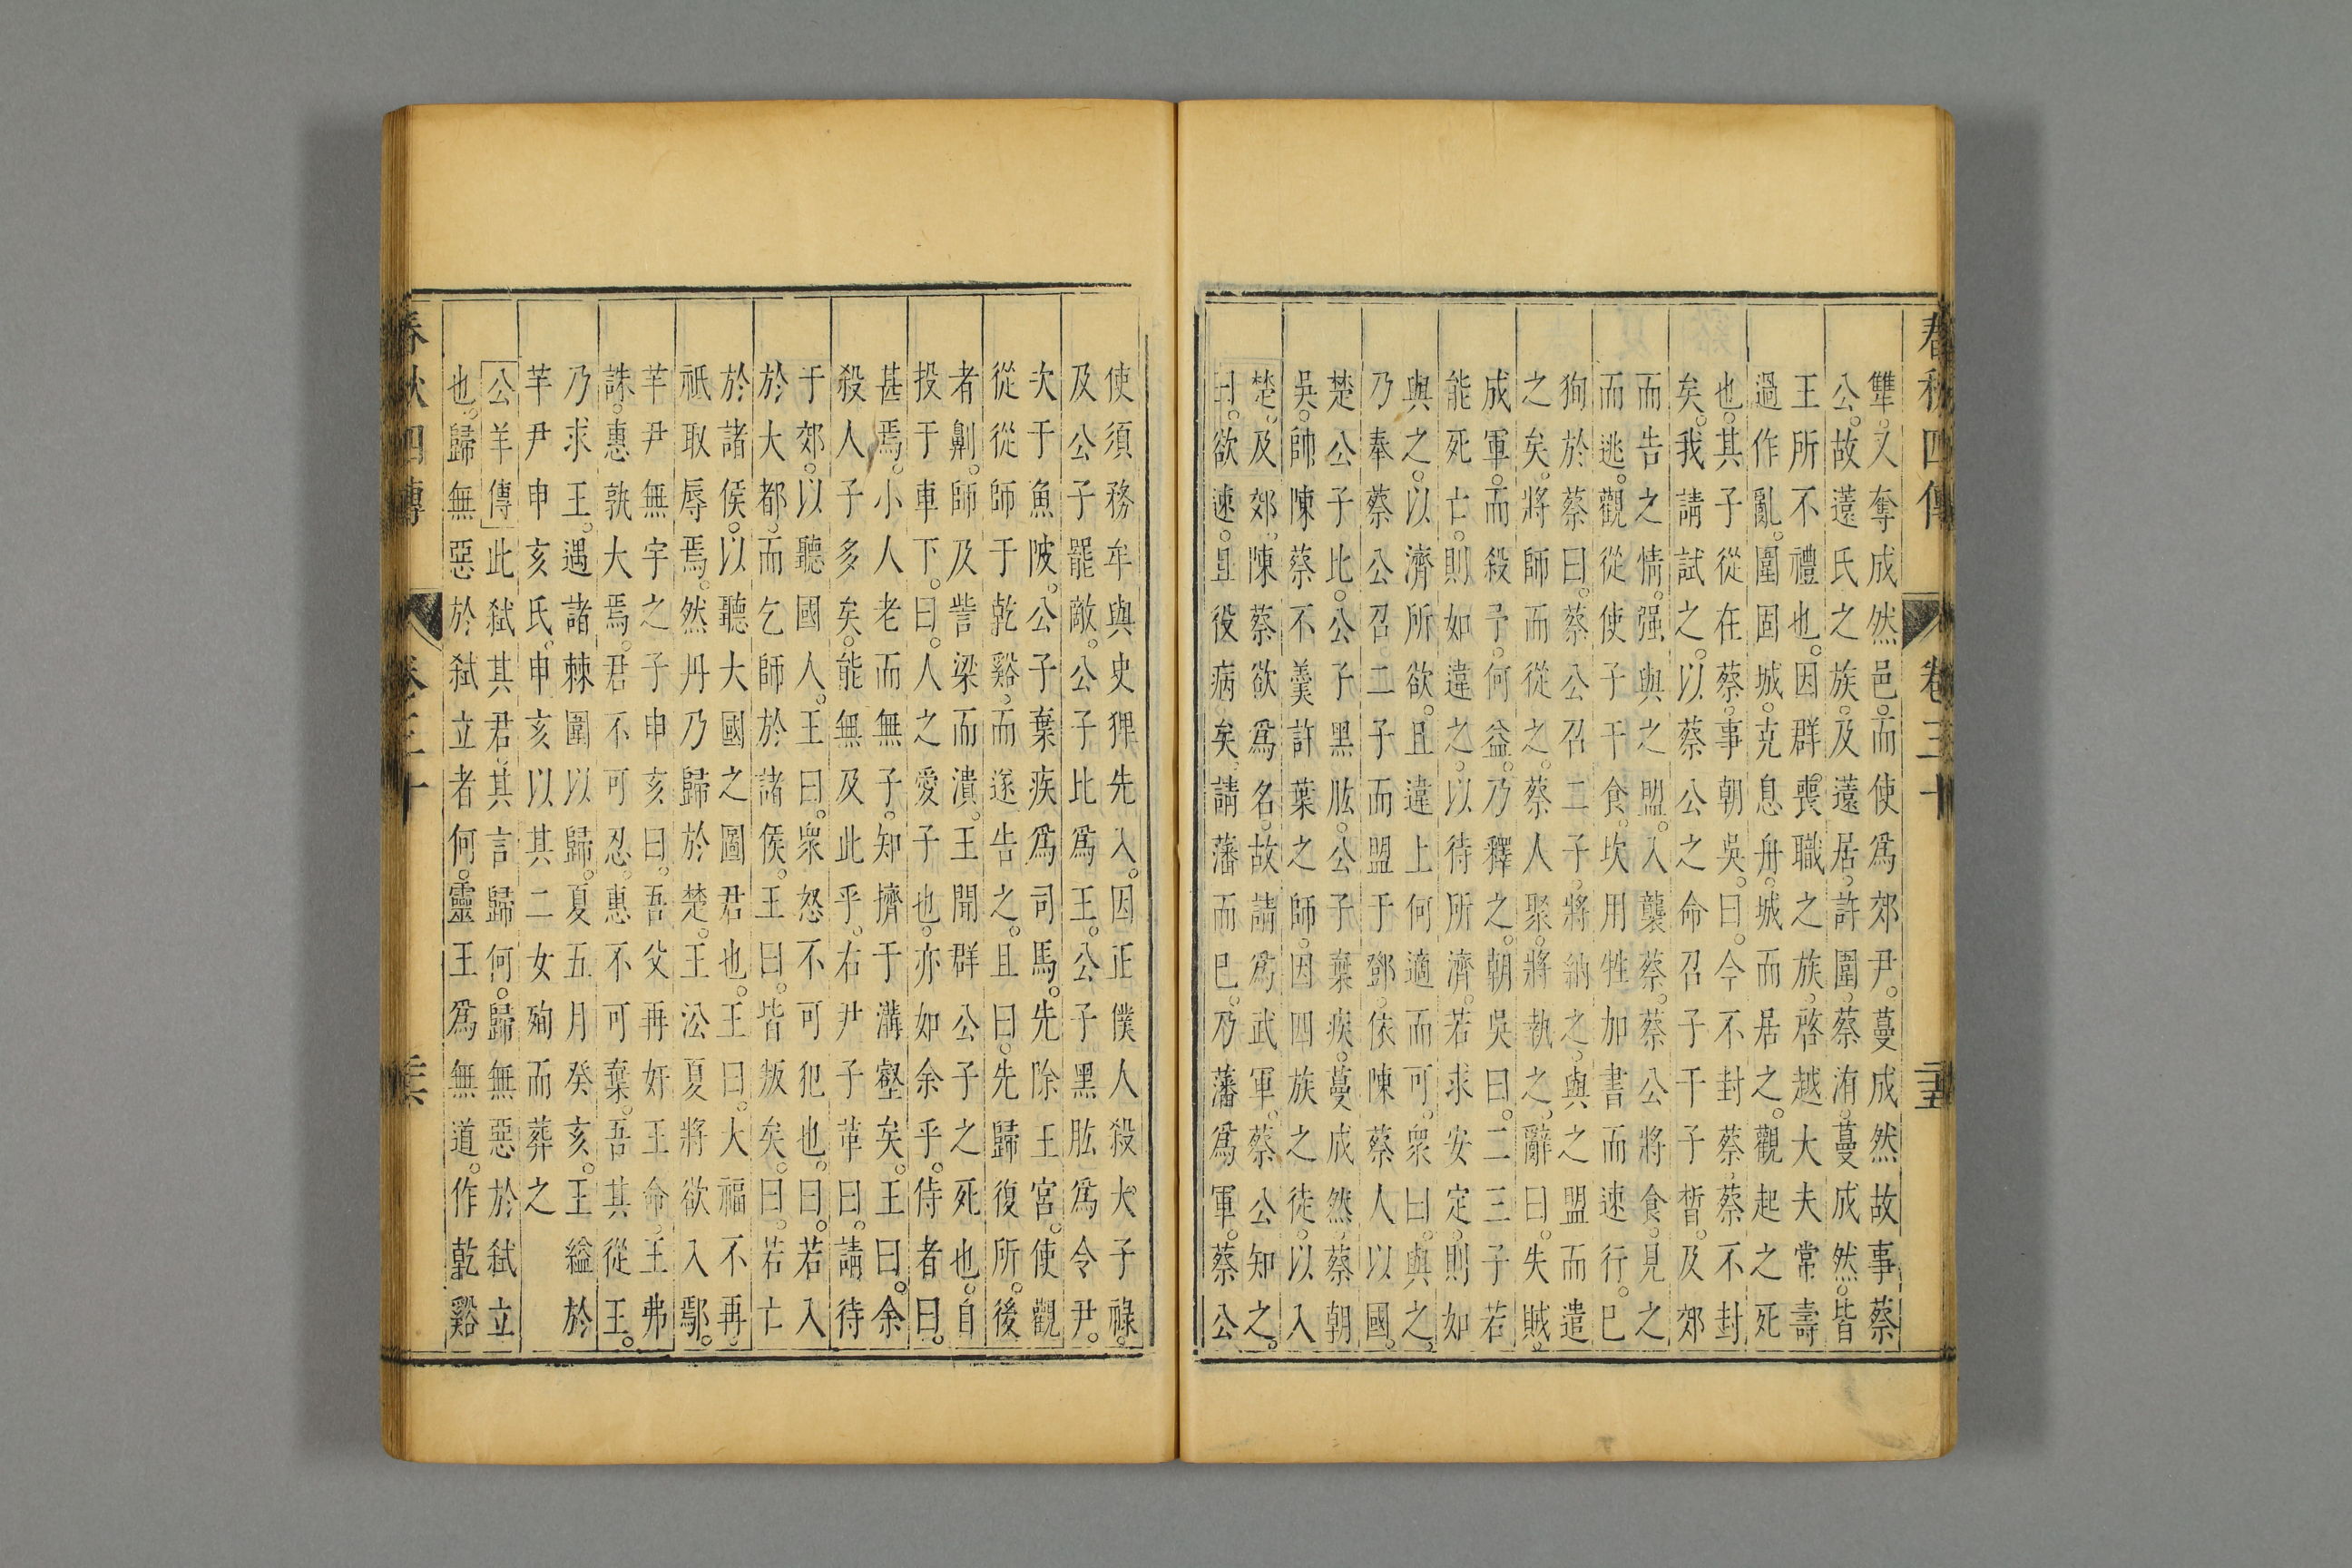 春秋四傳 卷三十 二十五
犨。又奪成然邑。而使爲郊尹。蔓成然故事蔡
公。故薳氏之族。及薳居。許圍。蔡洧。蔓成然。皆
王所不禮也。因群喪職之族。啓越大夫常壽
過作亂。圍固城。克息舟。城而居之。觀起之死
也。其子從在蔡。事朝吳。曰。今不封蔡。蔡不封
矣。我請試之。以蔡公之命召子干子晳。及郊
而告之情。强與之盟。入襲蔡。蔡公將食。見之
而逃。觀從使子干食。坎用牲加書而速行。巳
狥於蔡曰。蔡公召二子。將納之。與之盟而遣
之矣。將師而從之。蔡人聚。將執之。辭曰。失賊
成軍。而殺予。何益。乃釋之。朝吳曰。二三子若
能死亡。則如違之。以待所濟。若求安定。則如
與之。以濟所欲。且違上何適而可。衆曰。與之。
乃奉蔡公。召二子而盟于鄧。依陳蔡人以國。
楚公子比。公子黑肱。公子棄疾。蔓成然。蔡朝
吳。帥陳蔡不羹許葉之師。因四族之徒。以入
楚。及郊。陳蔡欲爲名。故請爲武軍。蔡公知之。
曰。欲速。且役病矣。請藩而巳。乃藩爲軍。蔡公
使須務牟與史猈先入。因正僕人殺大子祿。
及公子罷敵。公子比爲王。公子黑肱爲令尹。
次于魚陂。公子棄疾爲司馬。先除王宮。使觀
從從師于乾谿。而遂告之。且曰。先歸復所。後
者劓。師及訾梁而潰。王聞群公子之死也。自
投于車下。曰。人之愛子也。亦如余乎。侍者曰。
甚焉。小人老而無子。知擠于溝壑矣。王曰。余
殺人子多矣。能無及此乎。右尹子革曰。請待
于郊。以聽國人。王曰。衆怒不可犯也。曰。若入
於大都。而乞師於諸侯。王曰。皆叛矣。曰。若亡
於諸侯。以聽大國之圖君也。王曰。大福不再。
祗取辱焉。然丹乃歸於楚。王沿夏將欲入鄢。
芊尹無宇之子申亥曰。吾父再奸王命。王弗
誅。惠孰大焉。君不可忍。惠不可棄。吾其從王。
乃求王。遇諸棘圍以歸。夏五月癸亥。王縊於
芊尹申亥氏。申亥以其二女殉而葬之
公羊傳此弒其君。其言歸何。歸無惡於弒立
也。歸無惡於弒立者何。靈王爲無道。作乾谿
春秋四傳 卷三十